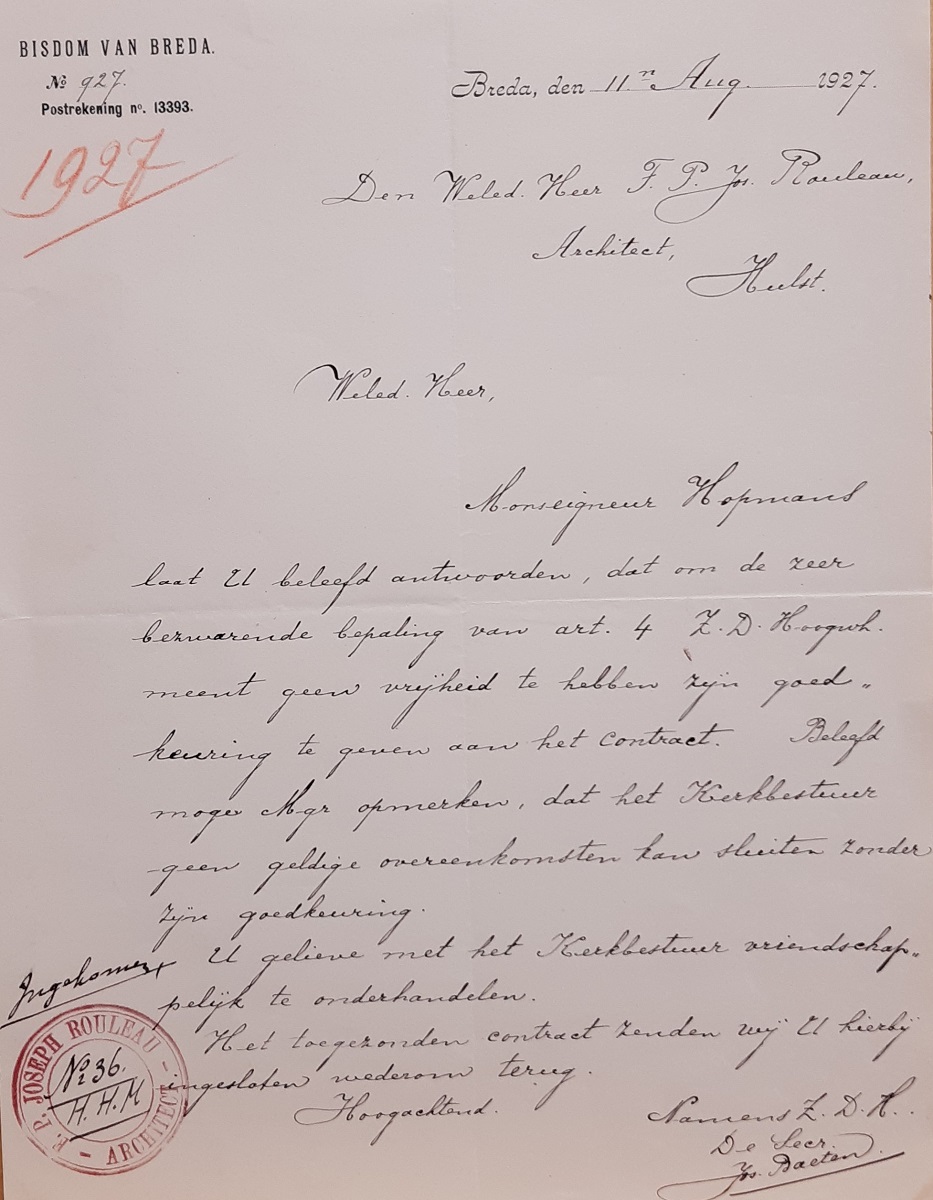 BISDOM VAN BREDA.
No 927.
Postrekening no. 13393.
1927
Breda, den 11n Aug. 1927.
Den Weled. Heer F. P. Jos. Rouleau,
Architect,
Hulst.
Weled. Heer,
Monseigneur Hopmans
laat U beleefd antwoorden, dat om de zeer
bezwarende bepaling van art. 4 Z. D. Hoogwh.
meent geen vrijheid te hebben zijn goed„
keuring te geven aan het contract. Beleefd
moge Mgr opmerken, dat het Kerkbestuur
geen geldige overeenkomsten kan sluiten zonder
zijn goedkeuring.
U gelieve met het Kerkbestuur vriendschap„
pelijk te onderhandelen.
Het toegezonden contract zenden wij U hierbij
ingesloten wederom terug.
Hoogachtend.
Namens Z. D. H..
De Secr.
Jos. Baeten.
Ingekomen
F. P. JOSEPH ROULEAU - ARCHITECT -
No 36.
H.H.M